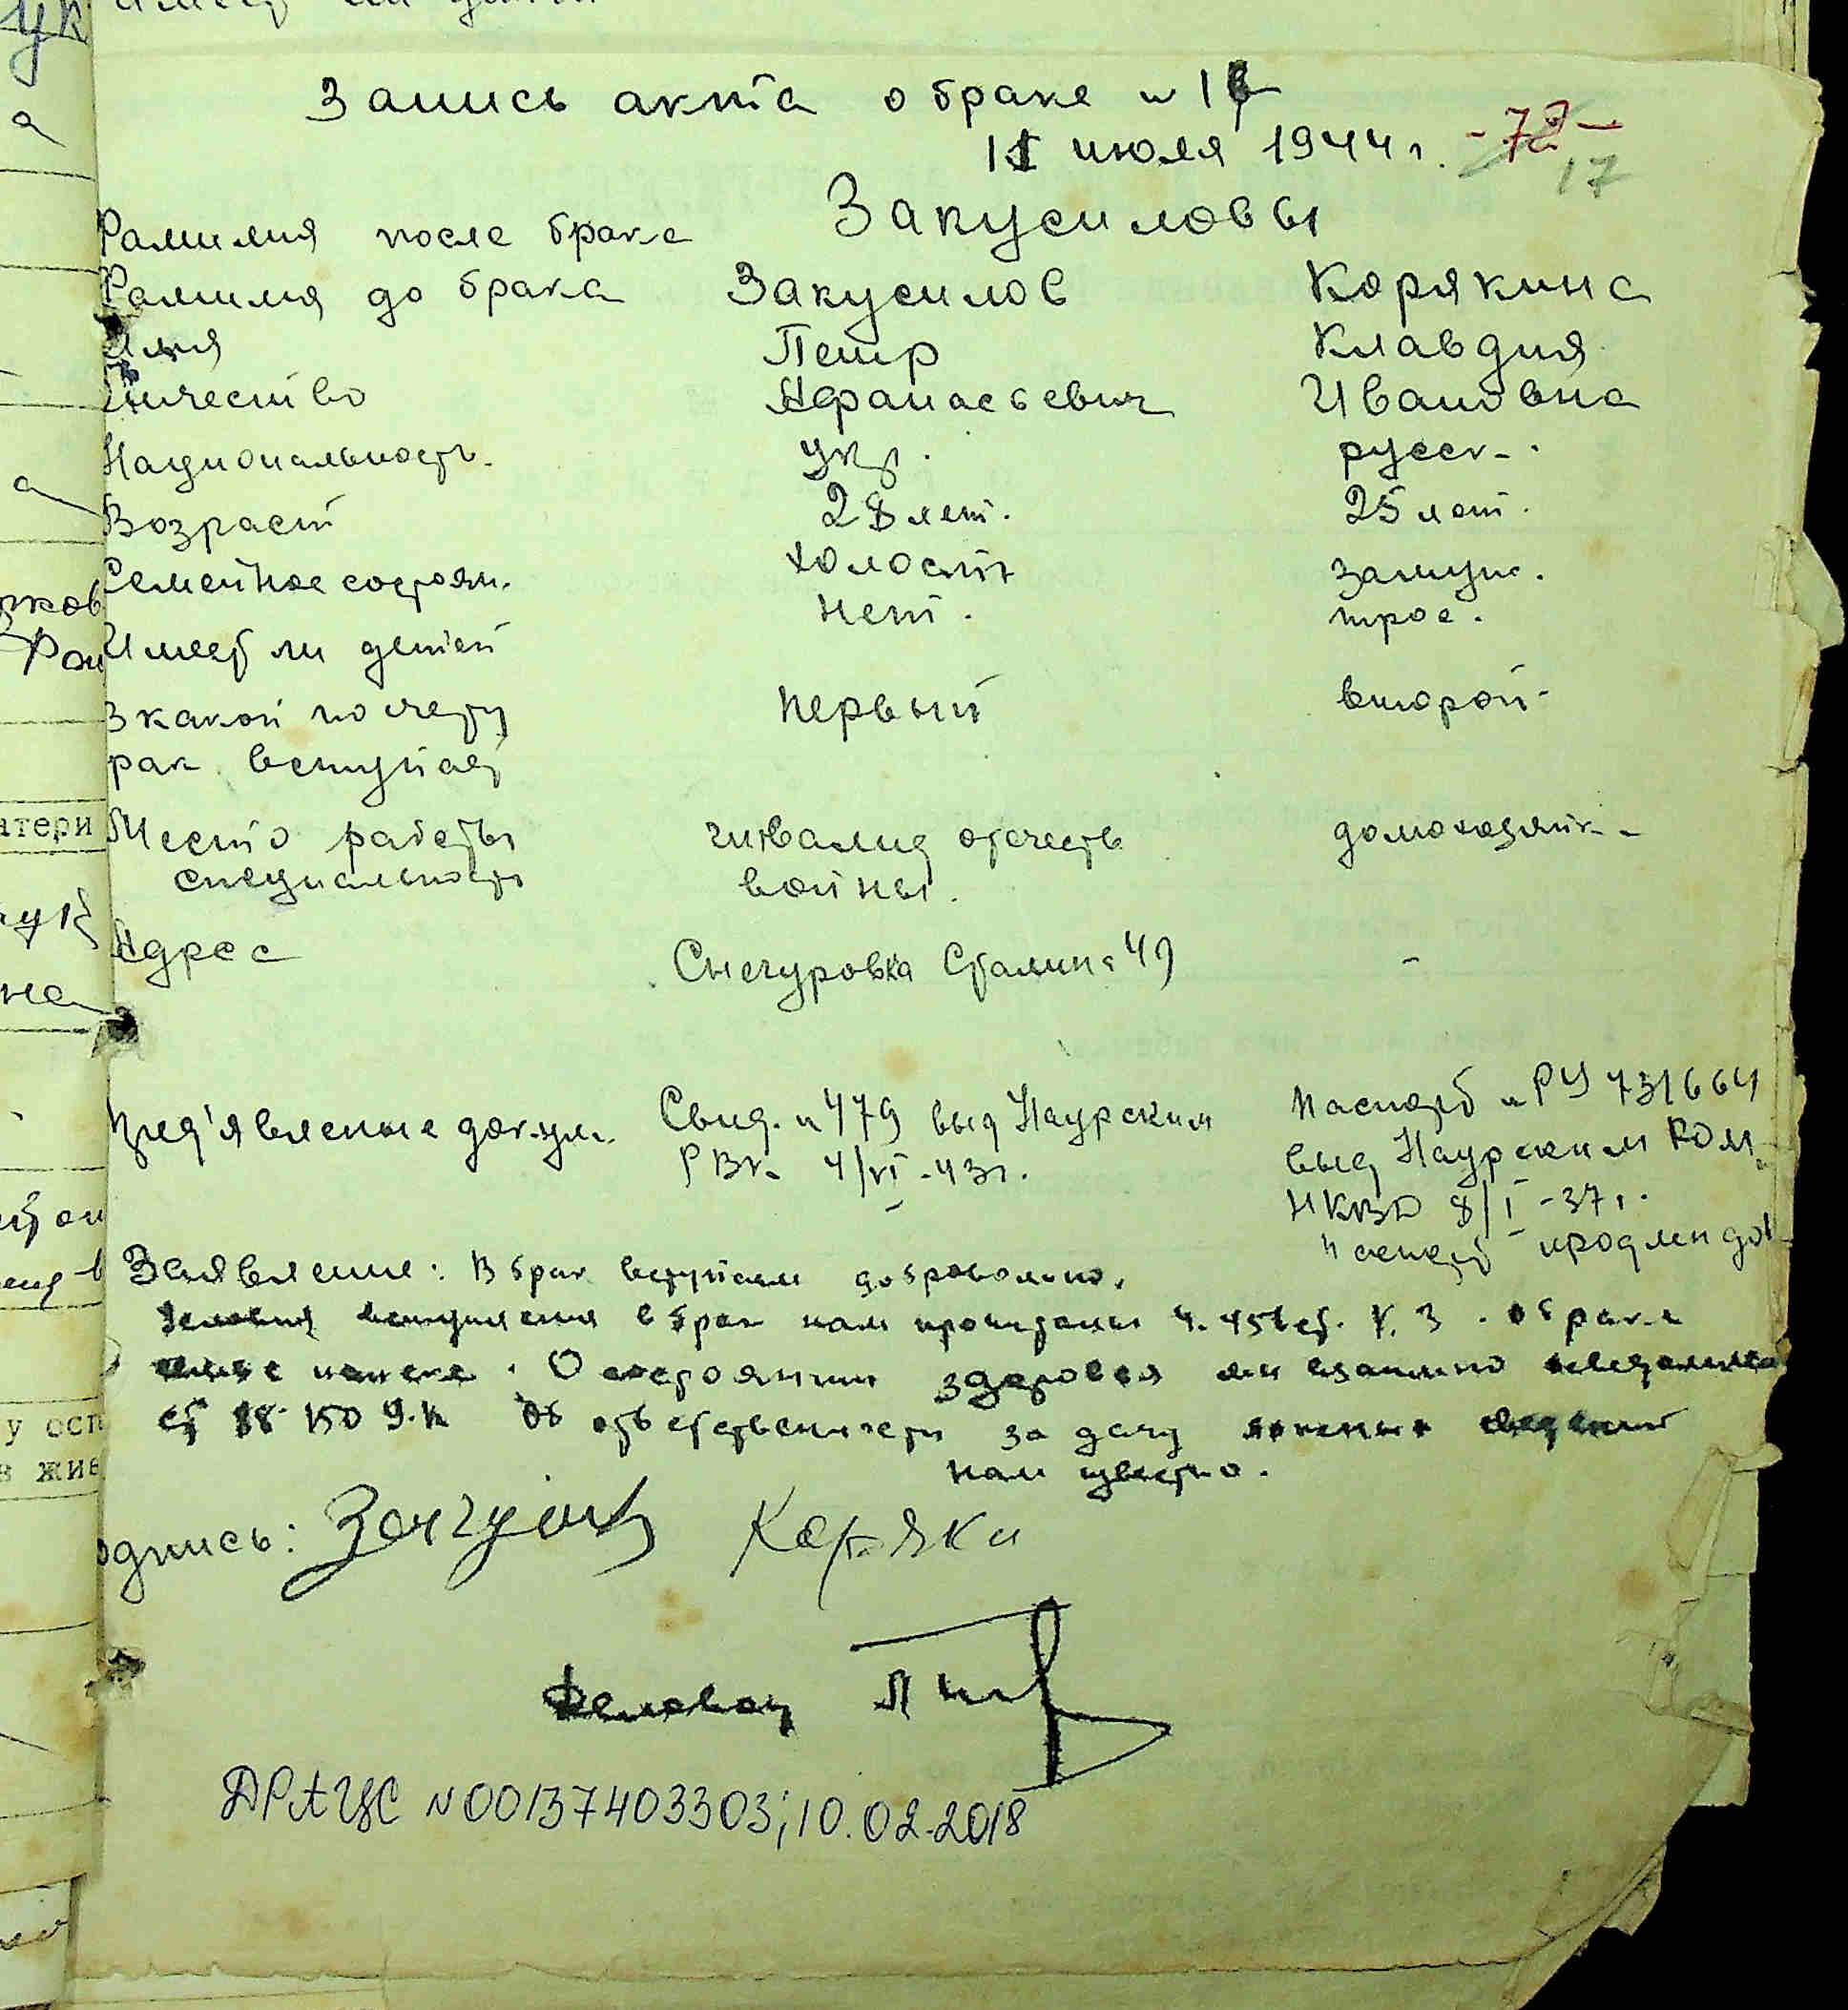 Запись акта о браке № 16
11 июля 1944 г. -72-
17
Фамилия после брака Закусиловы
Фамилия до брака Закусилов Корякина
Имя Петр Клавдия
Отчество Афанасьевич Ивановна
Национальность. укр. русск.
Возраст 28 лет. 25 лет.
Семейное состоян. холост замуж.
Имеет ли детей нет. трое.
В какой по счету первый второй
рак вступает
Место работы инвалид отечеств домохозяйк.
специальность войны.
Адрес Снегуровка Сталина 49 -
Пред'явленные докум. Свид. № 479 выд Наурским Паспорт № РУ 731664
РВк 4/VI-43г. выд Наурским РОМ
НКВД 8/I-37г.
паспорт продлен до
Заявление: В брак вступаем добровольно.
Условия вступления в брак нам прочитаны ч. 45 о браке
семье и опеке. О состоянии здоровья мы взаимно осведомлены
ст 88 У.К Об ответственности за дачу ложных сведений
нам известно.
одпись: Корякин
ДРАЦС №00137403303; 10.02.2018